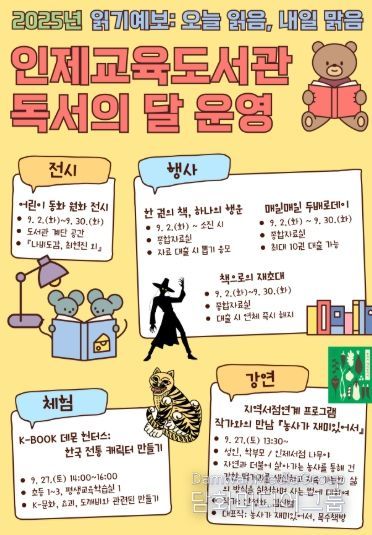 2025년 읽기예보: 오늘 읽음, 내일 맑음
인제교육도서관
독서의 달 운영
전시
어린이 동화 원화 전시
9. 2.(화)~9. 30.(화)
도서관 계단 공간
『나비도감, 최현진 외』
행사
한 권의 책, 하나의 행운
9. 2.(화) ~ 소진 시
종합자료실
자료 대출 시 뽑기 응모
매일매일 두배로데이
9. 2.(화) ~ 9. 30.(화)
종합자료실
최대 10권 대출 가능
책으로의 재초대
9. 2.(화)~9. 30.(화)
종합자료실
대출 시 연체 즉시 해지
체험
K-BOOK 데몬 헌터스:
한국 전통 캐릭터 만들기
9. 27.(토) 14:00~16:00
초등 1~3, 평생교육학습실 1
K-문화, 호랑이, 도깨비와 관련된 만들기
강연
지역서점연계 프로그램
작가와의 만남 『농사가 재미있어서』
9. 27.(토) 13:30~
성인, 학부모 / 인제서점 나무이
자연과 더불어 살아가는 농사를 통해 건
대표작: 농사가 재미있어서, 목수책방